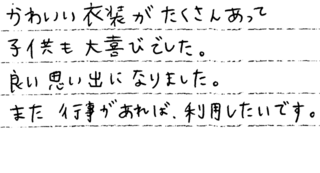 かわいい衣装がたくさんあって
子供も大喜びでした。
良い思い出になりました。
また行事があれば、利用したいです。